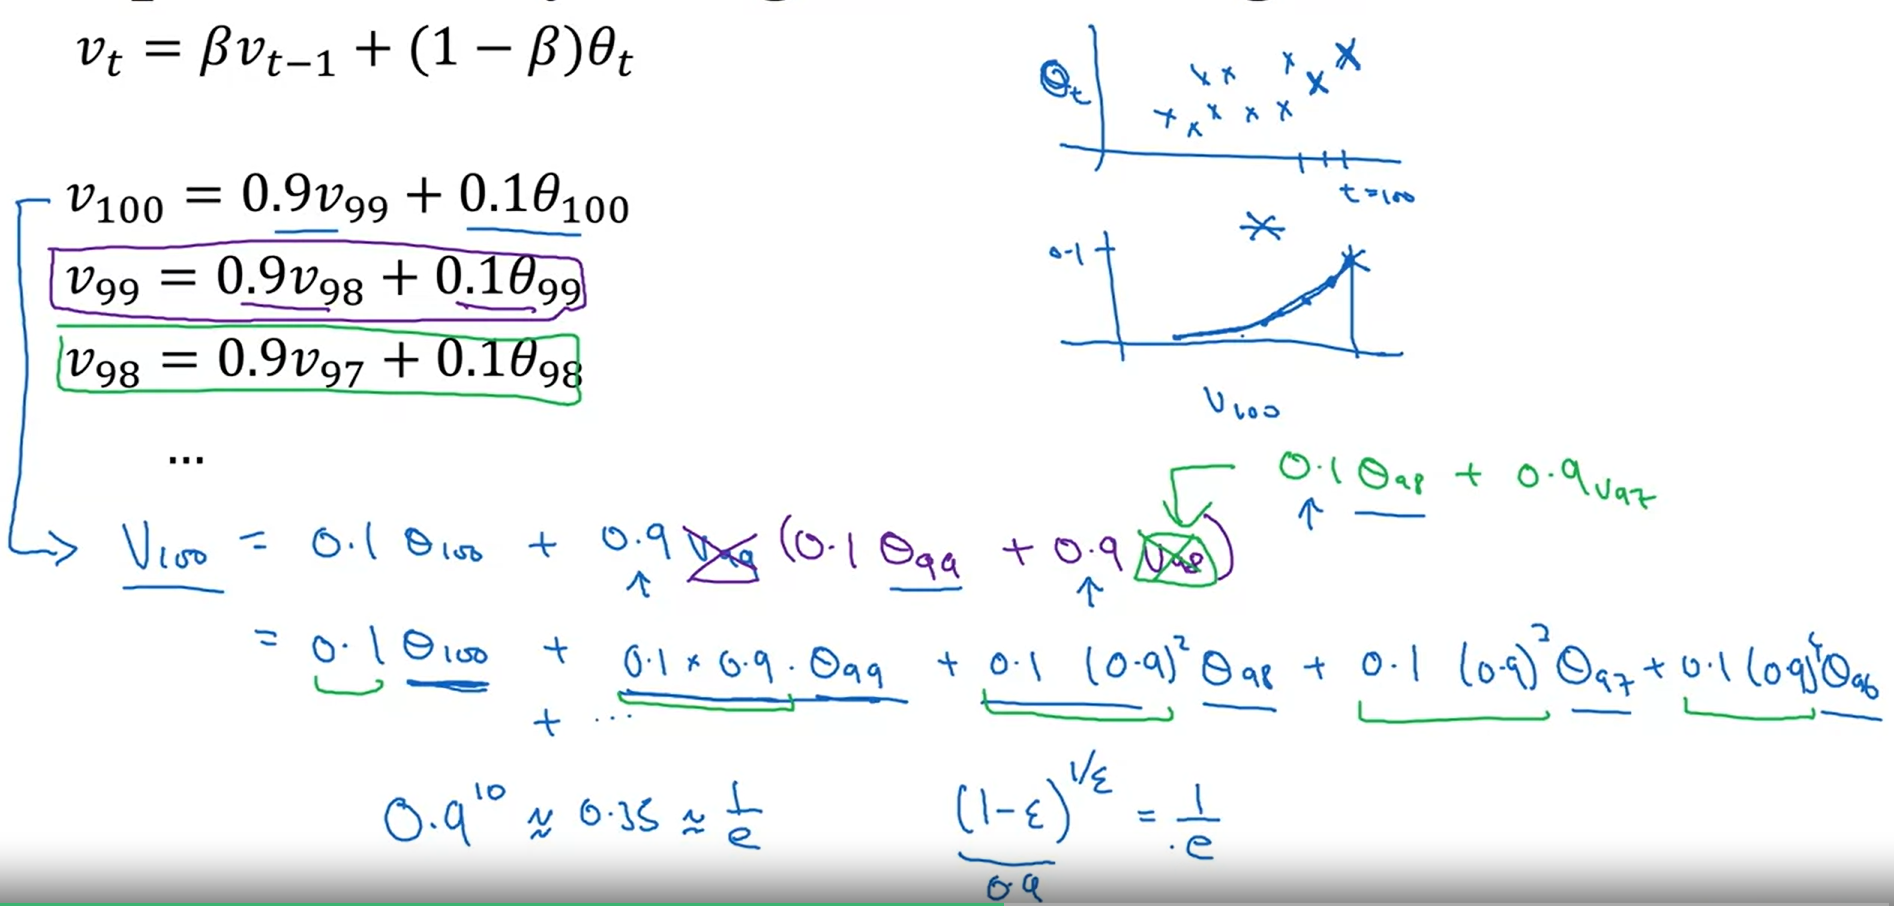 v_t = βv_{t−1} + (1 − β)θ_t
v_100 = 0.9v_99 + 0.1θ_100
v_99 = 0.9v_98 + 0.1θ_99
v_98 = 0.9v_97 + 0.1θ_98
...
θ_t
t=100
0.1
V_100
0.1 θ_98 + 0.9 v_97
V_100 = 0.1 θ_100 + 0.9 v_99 (0.1 θ_99 + 0.9 v_98)
= 0.1 θ_100 + 0.1 × 0.9 · θ_99 + 0.1 (0.9)^2 θ_98 + 0.1 (0.9)^3 θ_97 + 0.1 (0.9)^4 θ_96
+ ...
0.9^10 ≈ 0.35 ≈ 1/e
(1-ε)^{1/ε} = 1/e
0.9